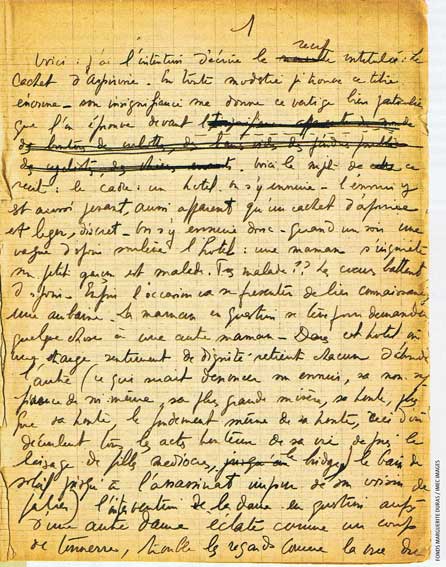 1
Voici : j'ai l'intention d'écrire le récit intitulé : le
cachet d'aspirine. En toute modestie je trouve ce titre
énorme - son insignifiance me donne ce vertige bien particulier
que l'on éprouve devant l'insignifiance apparente du monde
des boutons de culottes, des
des cyclistes, des chiens, . Voici le sujet de ce
récit : le cadre : un hotel. On s'y ennuie - l'ennui y
est aussi pesant, aussi apparent qu'un cachet d'aspirine
est léger, discret - On s'y ennuie donc - quand un soir une
vague d'espoir soulève l'hotel : une maman s'inquiète
son petit garçon est malade. Très malade ?? Les cœurs battent
d'espoir. Enfin l'occasion va se présenter de lier connaissance,
une aubaine. La maman en question se lève pour demander
quelque chose à une autre maman - Dans cet hotel où
un étrange sentiment de dignité retient chacun d'aborder
l'autre (ce qui serait dénoncer son ennui, sa non
de soi-même, sa plus grande misère, sa honte, plus
que sa honte, le fondement même de sa honte, ceci d'où
découlent tous les actes honteux de sa vie depuis le
baisage de filles médiocres, jusqu'au le bridge, le bain de
soleil jusqu'à l'assassinat impuni de son voisin de
palier) l'intervention de la dame en question auprès
d'une autre dame éclate comme un coup
de tonnerre, trouble les regards comme la vue des
FONDS MARGUERITE DURAS / IMEC IMAGES